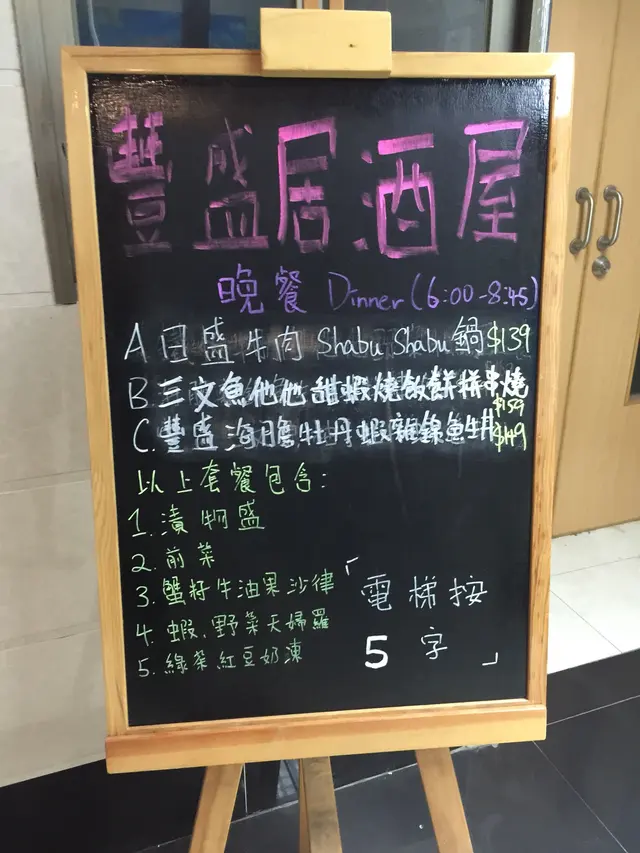 豐盛居酒屋
晚餐 Dinner (6:00-8:45)
A 日盛牛肉 Shabu Shabu 鍋 $139
B 三文魚他他甜蝦燒飯餅拼串燒 $159
C. 豐盛海膽牡丹蝦雜錦魚生丼 $149
以上套餐包含:
1. 漬物盛
2. 前菜
3. 蟹籽牛油果沙律
4. 蝦、野菜天婦羅
5. 綠茶紅豆奶凍
「電梯按
5字」